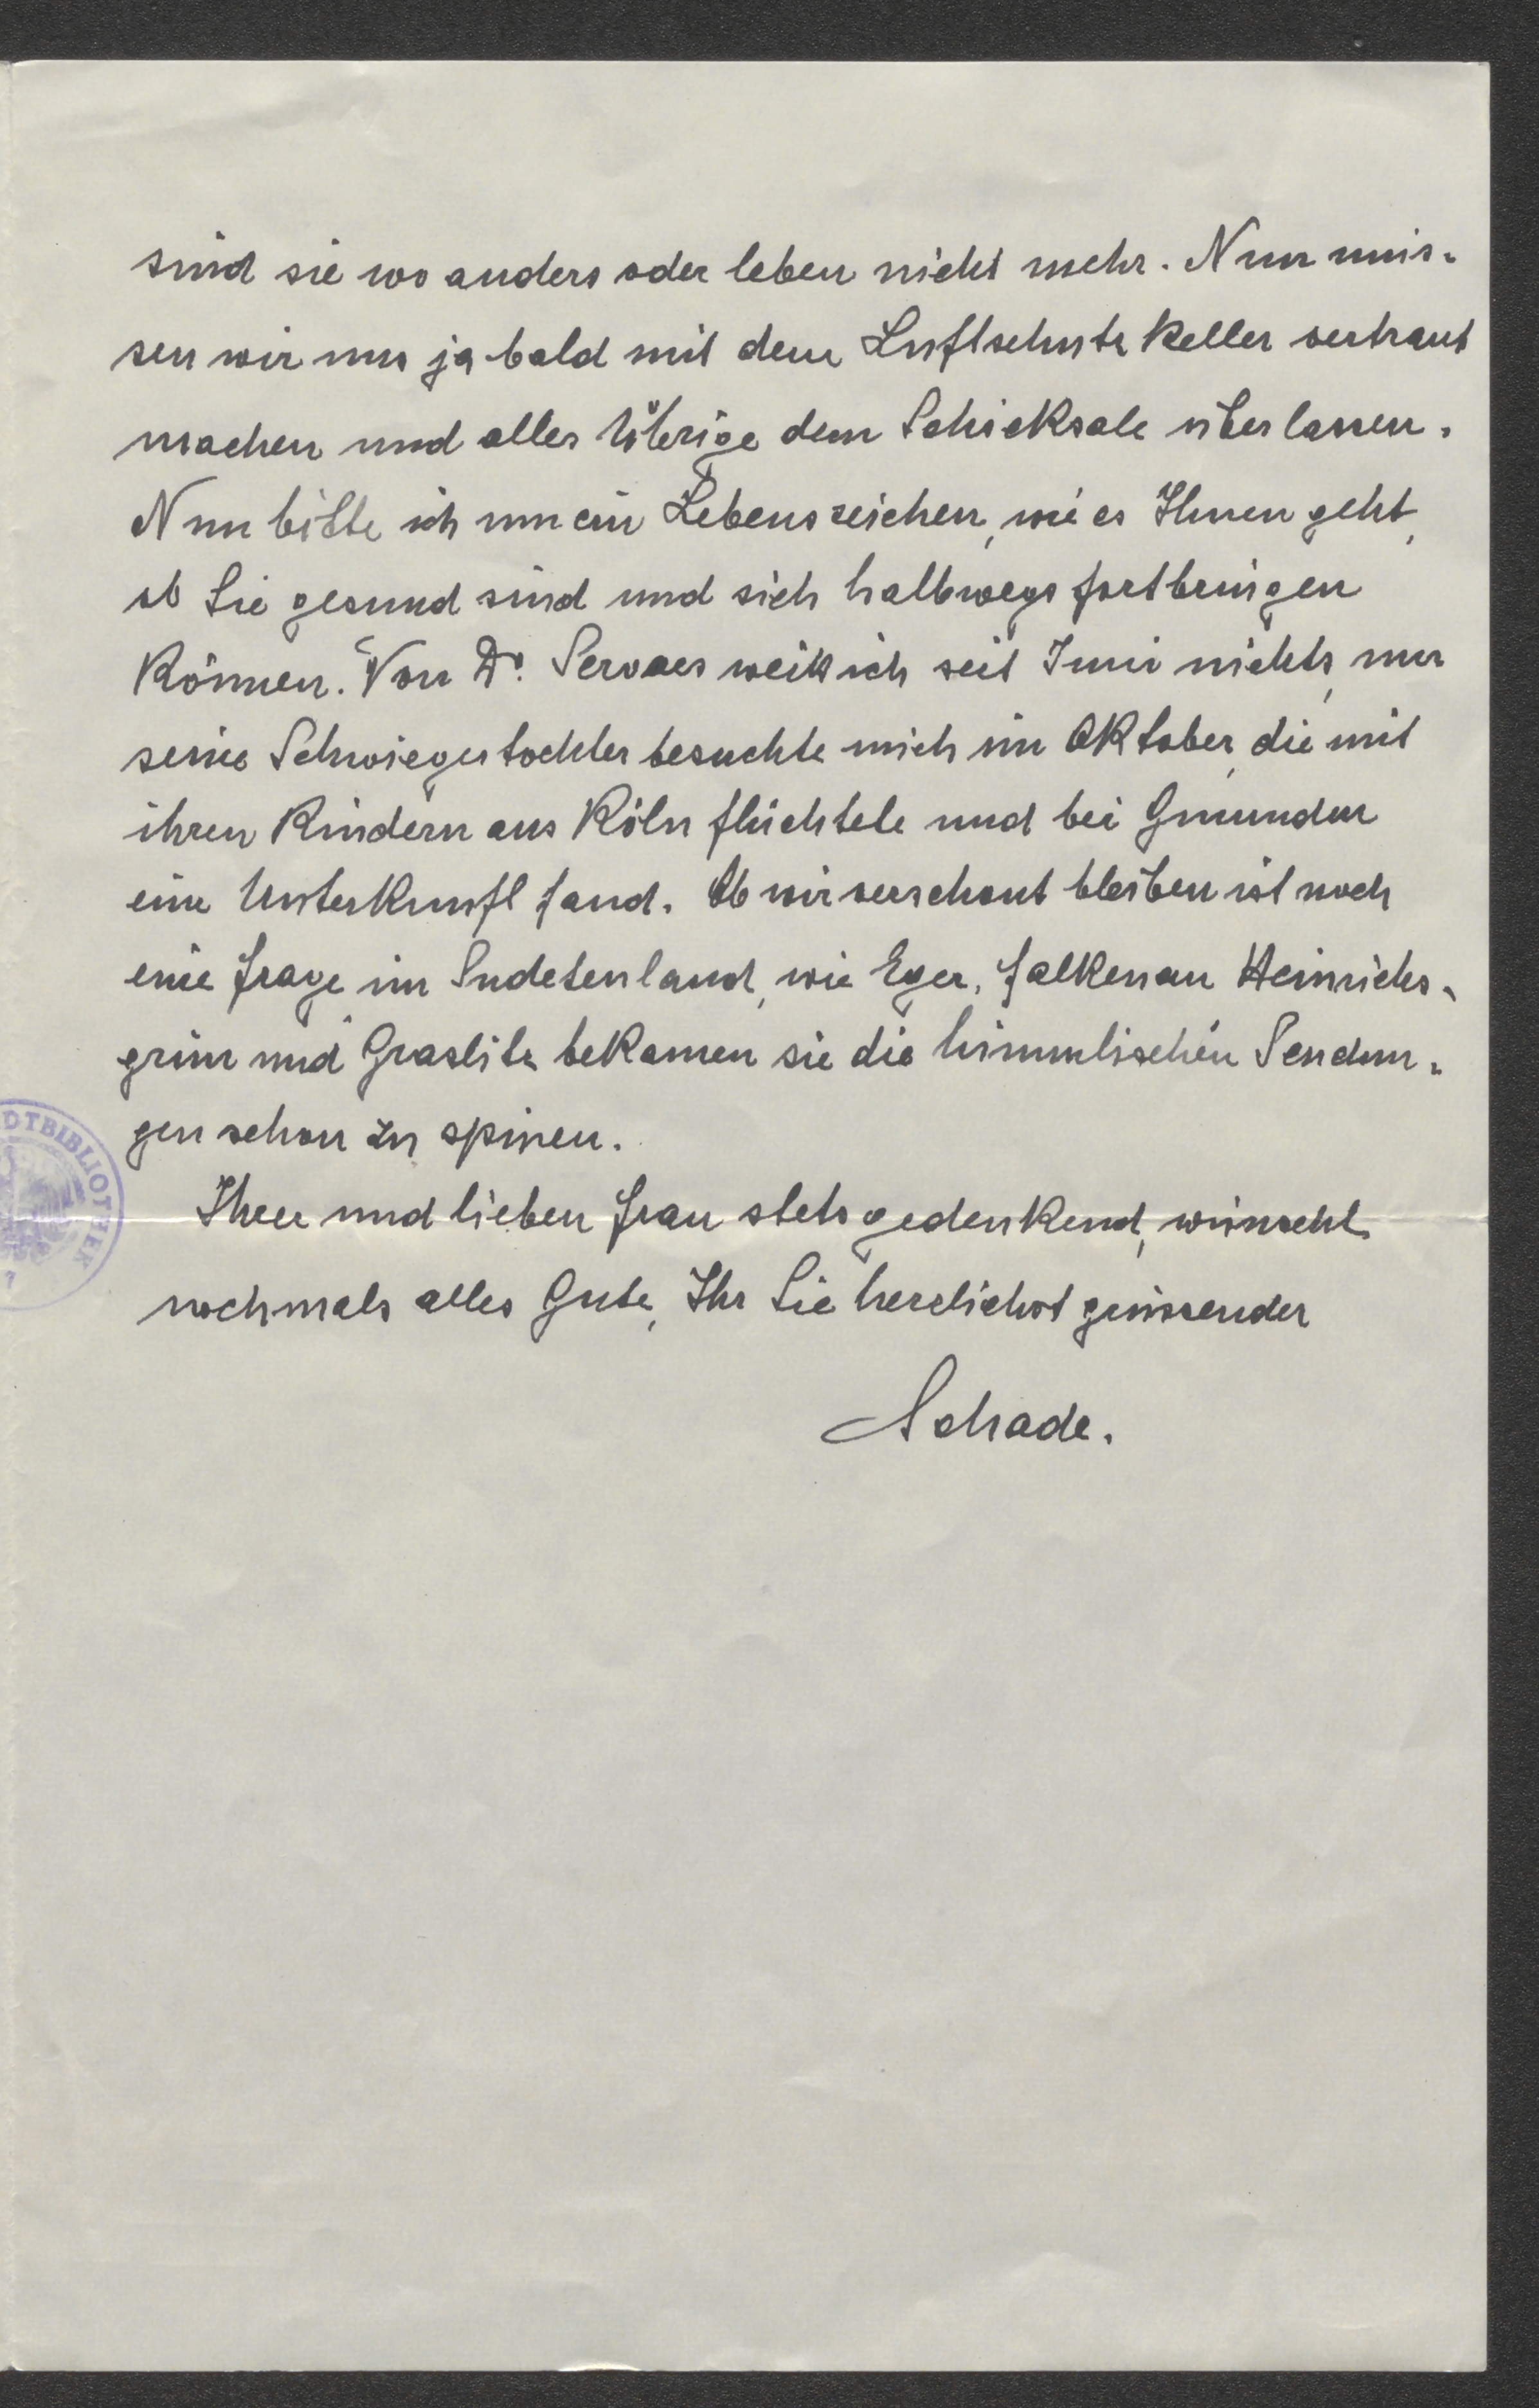 sind sie wo anders oder leben nicht mehr. Nun müs-
sen wir uns ja bald mit dem Luftschutz Keller vertraut
machen und alles Übrige dem Schicksale überlassen.
Nun bitte ich um ein Lebenszeichen, wie es Ihnen geht,
ob Sie gesund sind und sich halbwegs fortbringen
können. Von Dr. Servaes weiß ich seit Juni nichts, nur
seine Schwiegertochter besuchte mich im Oktober, die mit
ihren Kindern aus Köln flüchtete und bei Gmunden
eine Unterkunft fand. Ob wir verschont bleiben ist noch
eine Frage im Sudetenland, wie Eger, Falkenau Heinrichs-
grün und Graslitz bekamen sie die himmlischen Sendun-
gen schon zu spüren.
Ihrer und lieben Frau stets gedenkend, wünscht
nochmals alles Gute, Ihr Sie herzlichst grüssender
Schade.
DTBIBLIOTHEK